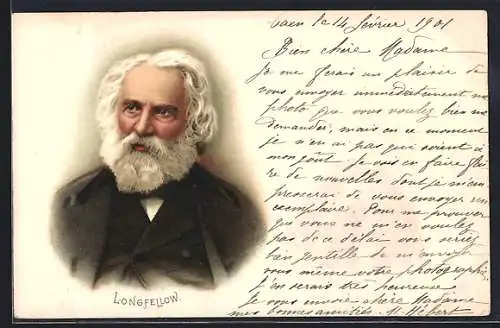 Caen le 14 février 1901
Bien chère Madame
Je me ferais un plaisir de
vous envoyer immédiatement ma
photo que vous voulez bien me
demander, mais en ce moment
je n'en ai pas qui soient à
mon goût. Je vais en faire fai
re de nouvelles dont je m'em
presserai de vous envoyer un
exemplaire. Pour me prouver
que vous ne m'en voulez
pas de ce délai vous seriez
bien gentille de m'envoyer
vous même votre photographie
j'en serais très heureuse.
Je vous envoie chère Madame
mes bonnes amitiés. M. Hébert
LONGFELLOW.